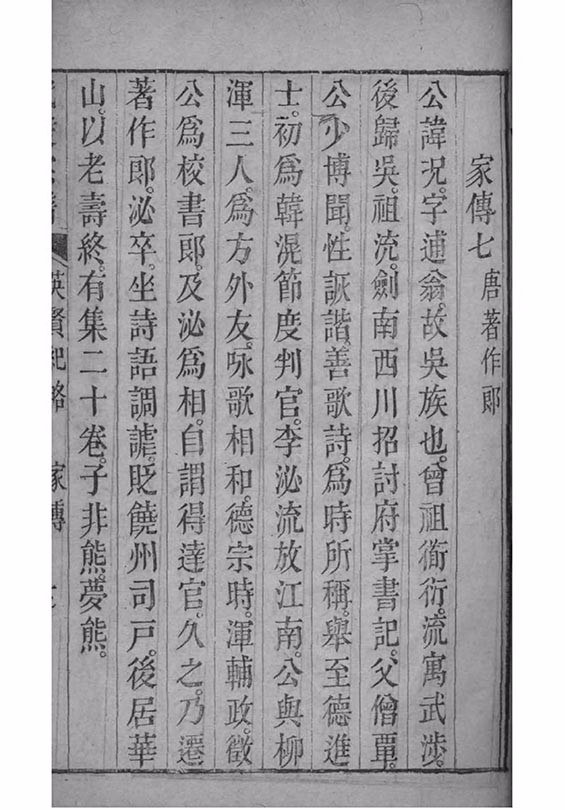 家傳七 唐著作郎
公諱況。字逋翁。故吳族也。曾祖衙衍。流寓武涉。
後歸吳。祖流。劍南西川招討府掌書記。父僧覃。
公少博聞。性詼諧。善歌詩。爲時所稱。舉至德進
士。初爲韓滉節度判官。李泌流放江南。公與柳
渾三人。爲方外友。咏歌相和。德宗時。渾輔政。徵
公爲校書郎。及泌爲相。自謂得達官。久之。乃遷
著作郎。泌卒。坐詩語調謔。貶饒州司戶。後居華
山。以老壽終。有集二十卷。子非熊。夢熊。
英賢紀略 家傳